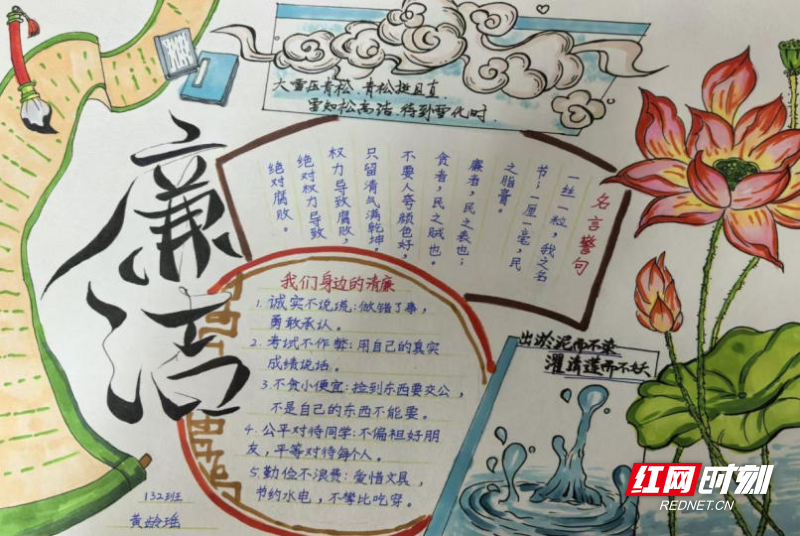 大雪压青松、青松挺且直
雪知松高洁、待到雪化时.
廉洁
名言警句
一丝一粒，我之名
节；一厘一毫，民
之脂膏。
廉者，民之表也；
贪者，民之贼也。
不要人夸颜色好，
只留清气满乾坤
权力导致腐败，
绝对权力导致
绝对腐败。
我们身边的清廉
1. 诚实不说谎：做错了事，
勇敢承认。
2. 考试不作弊：用自己的真实
成绩说话。
3. 不贪小便宜：捡到东西要交公，
不是自己的东西不能要。
4. 公平对待同学：不偏袒好朋
友，平等对待每个人。
5. 勤俭不浪费：爱惜文具，
节约水电，不攀比吃穿。
出淤泥而不染
濯清莲而不妖
132班
黄龄瑶
红网时刻
REDNET.CN